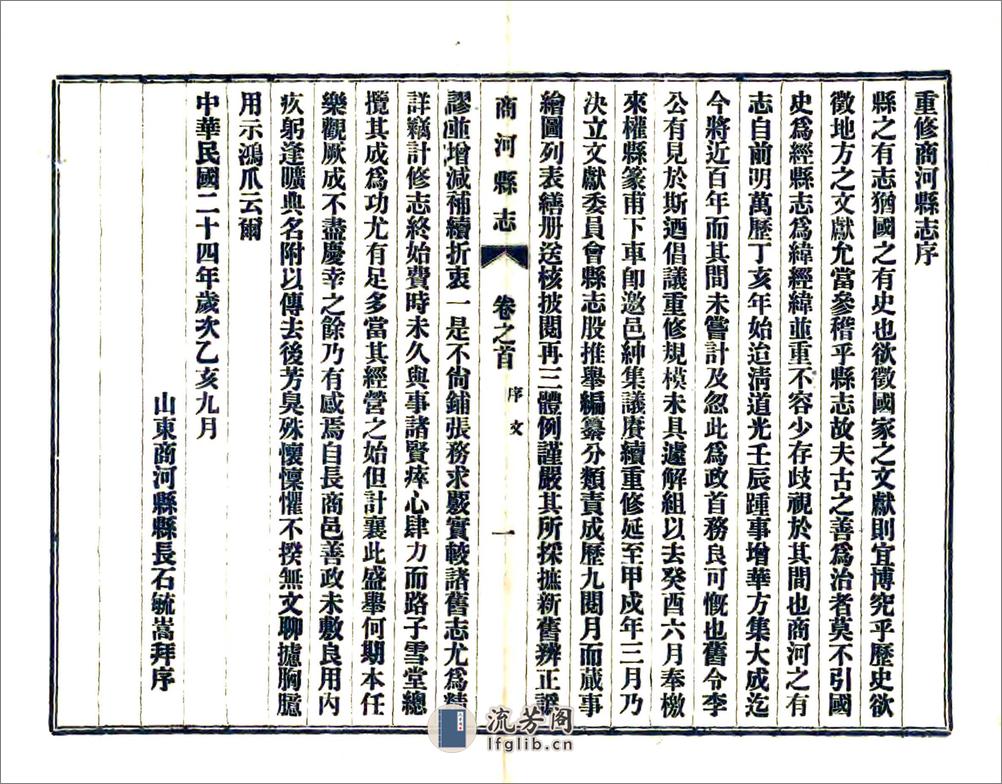 重修商河縣志序
縣之有志猶國之有史也欲徵國家之文獻則宜博究乎歷史欲
徵地方之文獻尤當參稽乎縣志故夫古之善爲治者莫不引國
史爲經縣志爲緯經緯並重不容少存歧視於其間也商河之有
志自前明萬歷丁亥年始迨淸道光壬辰踵事增華方集大成迄
今將近百年而其間未嘗計及忽此爲政首務良可慨也舊令李
公有見於斯迺倡議重修規模未具遽解組以去癸酉六月奉檄
來權縣篆甫下車卽邀邑紳集議賡續重修延至甲戍年三月乃
決立文獻委員會縣志股推舉編纂分類責成歷九閱月而蕆事
繪圖列表繕册送核披閱再三體例謹嚴其所採摭新舊辨正謡
商河縣志
卷之首
序文
一
謬並增減補續折衷一是不尙鋪張務求覈實較諸舊志尤爲精
詳竊計修志終始費時未久與事諸賢瘁心肆力而路子雪堂總
攬其成爲功尤有足多當其經營之始但計襄此盛舉何期本任
樂觀厥成不盡慶幸之餘乃有感焉自長商邑善政未敷良用內
疚躬逢曠典名附以傳去後芳臭殊懷懍懼不揆無文聊攄胸臆
用示鴻爪云爾
中華民國二十四年歲次乙亥九月
山東商河縣縣長石毓嵩拜序
流芳阁
lfglib.cn